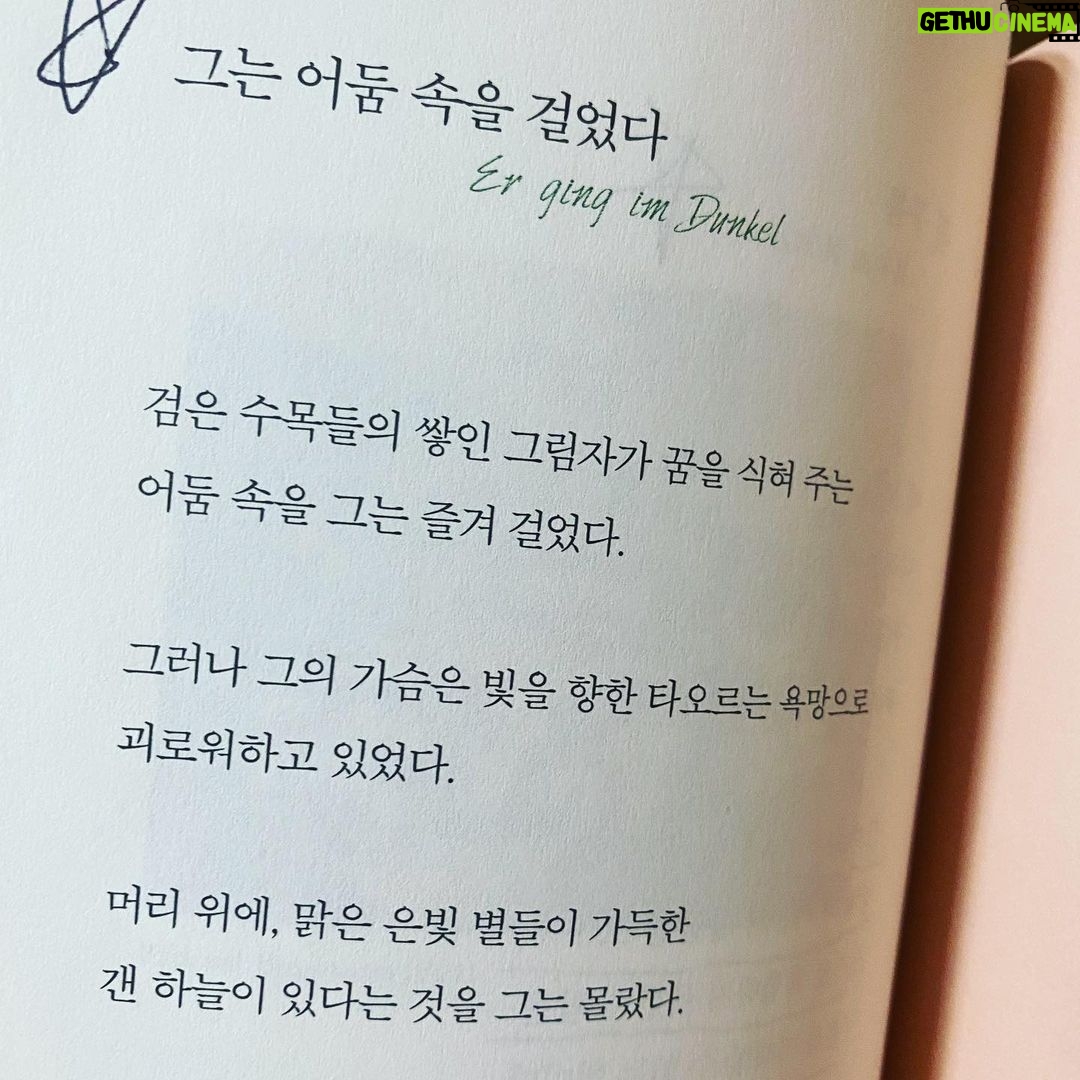 GETHUCINEMA
그는 어둠 속을 걸었다
Er ging im Dunkel
검은 수목들의 쌓인 그림자가 꿈을 식혀 주는
어둠 속을 그는 즐겨 걸었다.
그러나 그의 가슴은 빛을 향한 타오르는 욕망으로
괴로워하고 있었다.
머리 위에, 맑은 은빛 별들이 가득한
갠 하늘이 있다는 것을 그는 몰랐다.